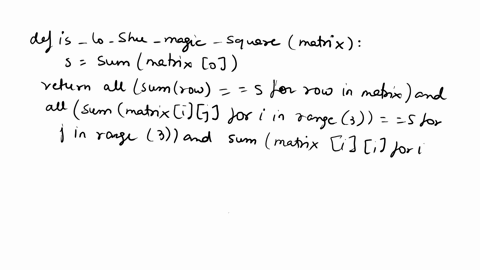 def is_lo_shu_magic_square (matrix):
s = sum (matrix [0])
return all (sum(row) == s for row in matrix) and
all (sum (matrix[i][j] for i in range (3)) == s for
j in range (3)) and sum (matrix [i][i] for i